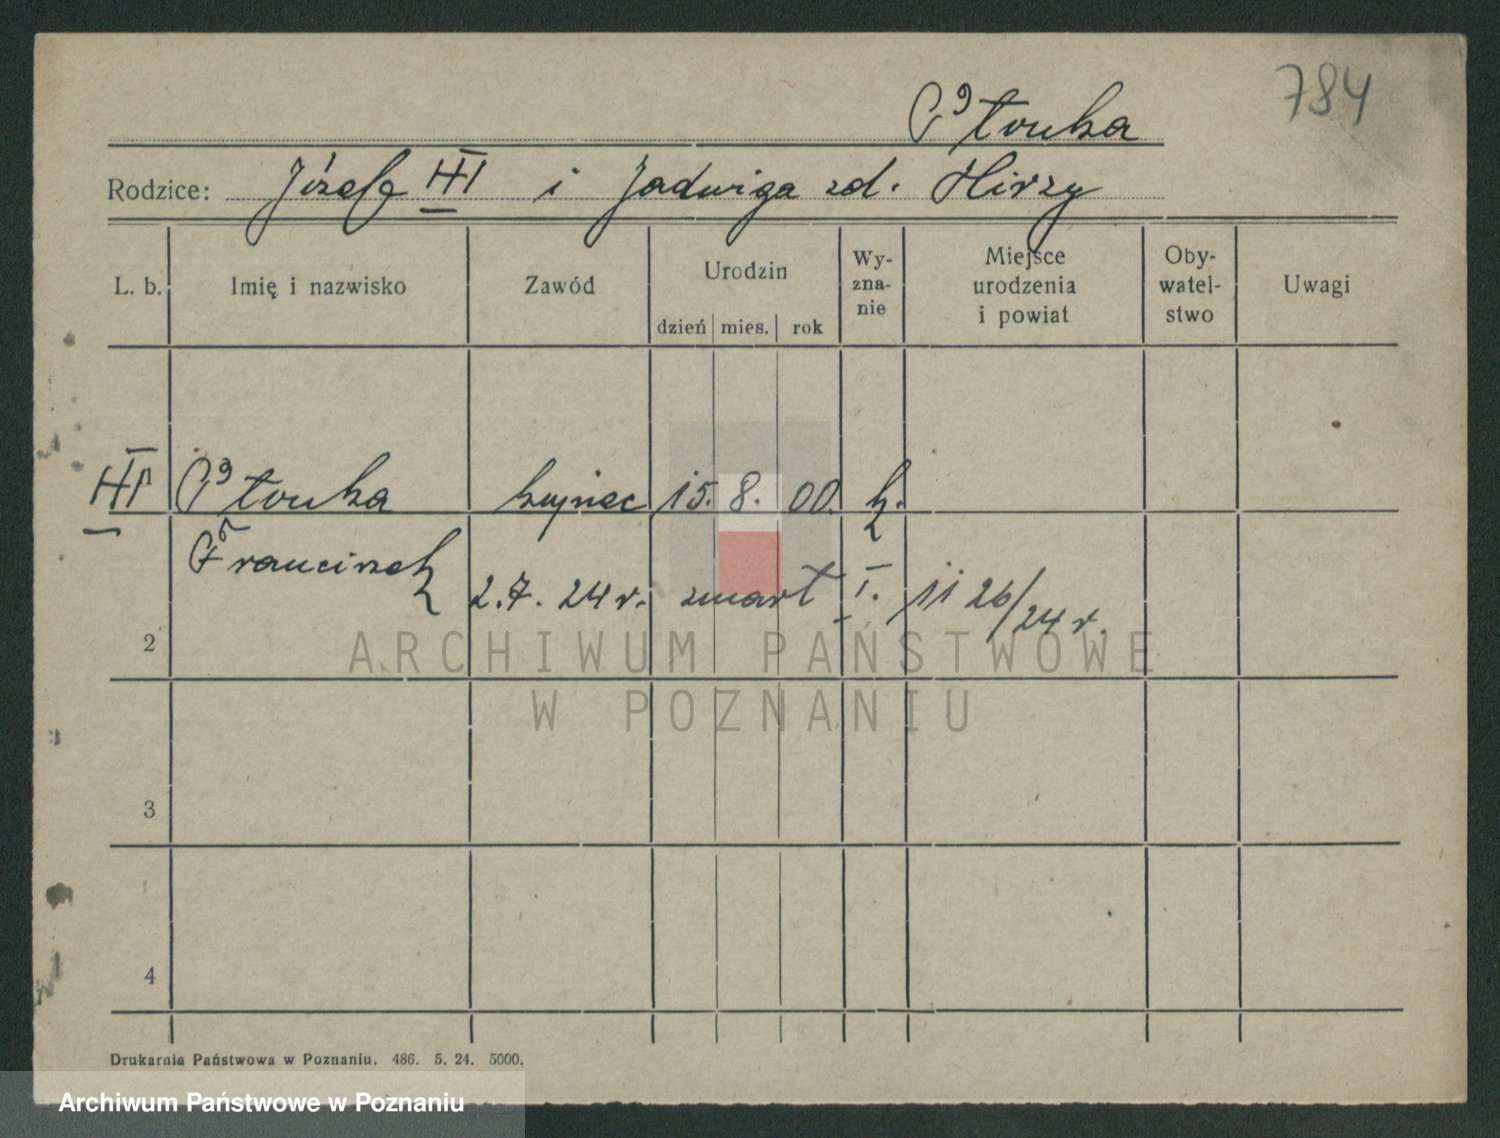 784
Ptouka
Rodzice: Józefa III i Jadwiga zd. Hirzy
L. b. Imię i nazwisko Zawód Urodzin dzień mies. rok Wy-zna-nie Miejsce urodzenia i powiat Oby-watel-stwo Uwagi
III Ptouka 15. 8. 00. k.
Franciszek
2.7. 24 r. zmarł I. 26/24 r.
2
ARCHIWUM PAŃSTWOWE
W POZNANIU
3
4
Drukarnia Państwowa w Poznaniu. 486. 5. 24. 5000.
Archiwum Państwowe w Poznaniu